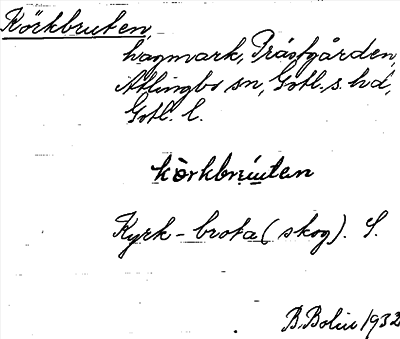 Körkbruten,
hagmark, Prästgården,
Atlingbo sn, Gotl. s. hd,
Gotl. l.
körkbruten
Kyrk-brota (skog). S.
B. Bolin 1932